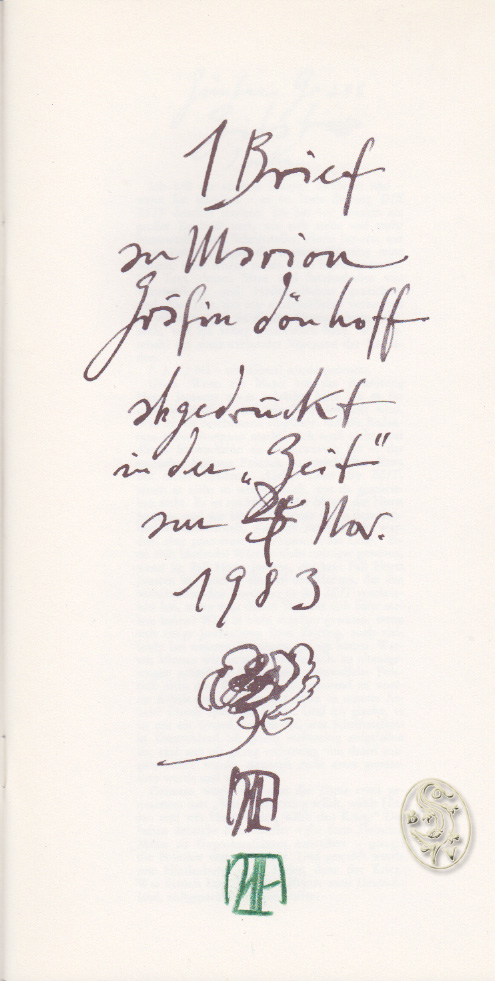 1 Brief
an Marion
Gräfin dönhoff
abgedruckt
in der „Zeit“
am Nov.
1983